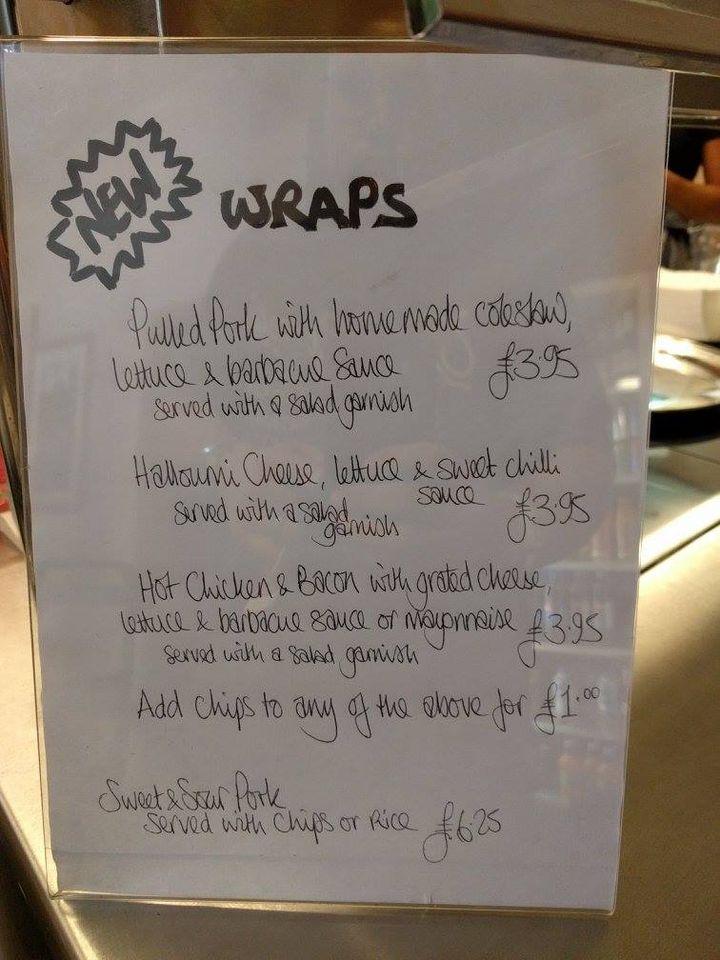 NEW WRAPS
Pulled Pork with homemade coleslaw,
lettuce & barbacue Sauce £3.95
served with a salad garnish
Halloumi Cheese, lettuce & sweet chilli
sauce
served with a salad £3.95
garnish
Hot Chicken & Bacon with grated cheese,
lettuce & barbacue sauce or mayonnaise £3.95
served with a salad garnish
Add chips to any of the above for £1.00
Sweet & Sour Pork
served with Chips or Rice £6.25